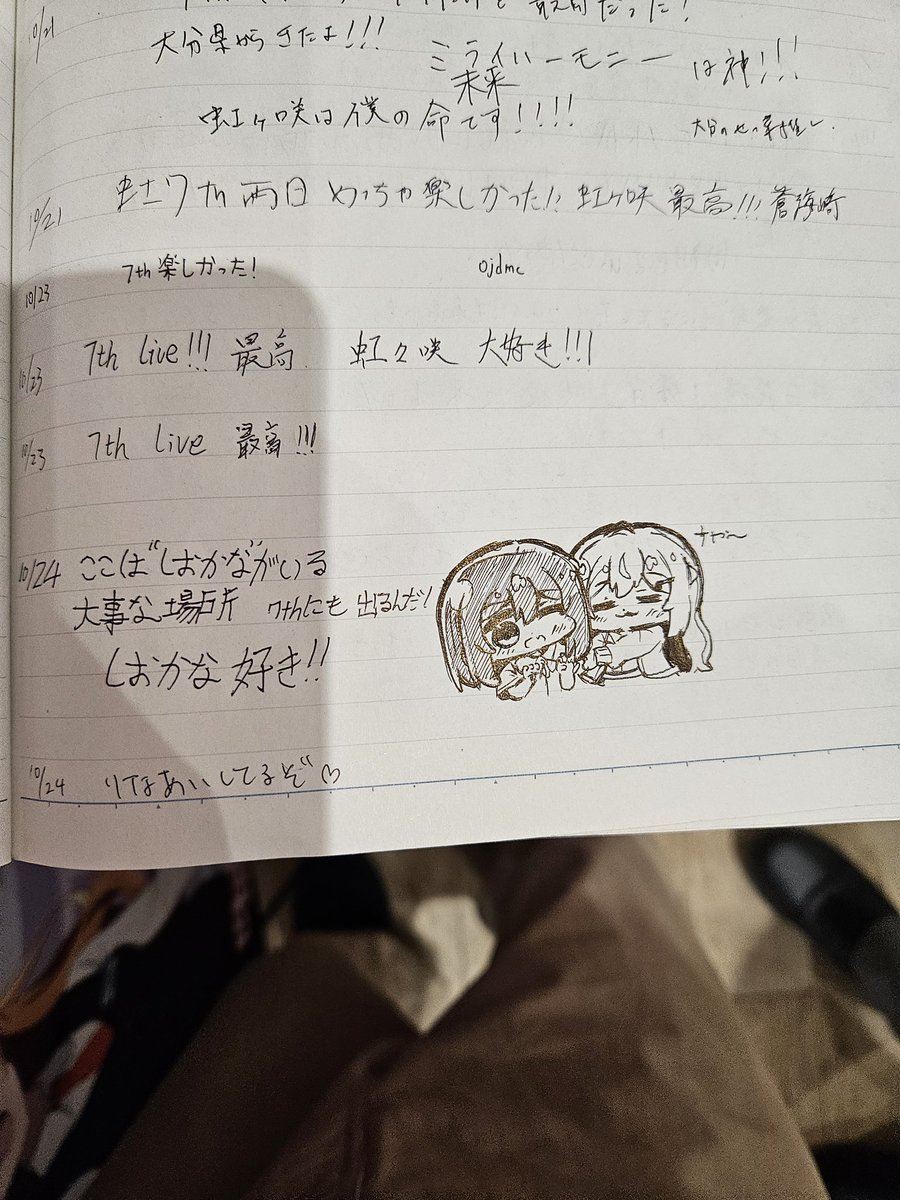 10/21
最高だった!
大分県からきたよ!!!
ミライハーモニー は神!!!
未来
虹ヶ咲は僕の命です!!!!
10/21 虹7th両日 めっちゃ楽しかった!! 虹ヶ咲 最高!!! 蒼海崎
10/23 7th楽しかった! ojdmc
10/23 7th Live!!! 最高 虹々咲 大好き!!!
10/23 7th Live 最高!!!
10/24 ここは"しおかな"がいる
大事な場所 7thにも 出るんだ!
しおかな 好き!!
10/24 りなあいしてるぞ♡